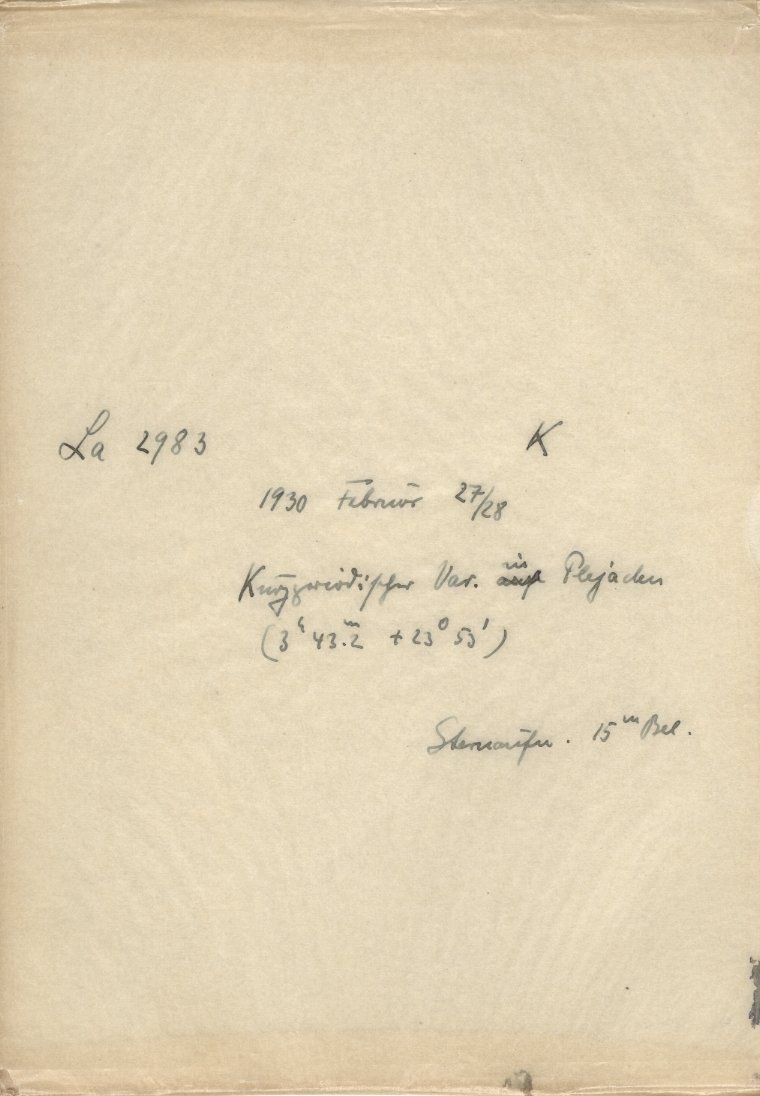 La 2983 K
1930 Februar 27/28
Kurzperiodischer Var. in Plejaden
(3ʰ 43.ᵐ2 +23° 53')
Sternaufn. 15ᵐ Bel.